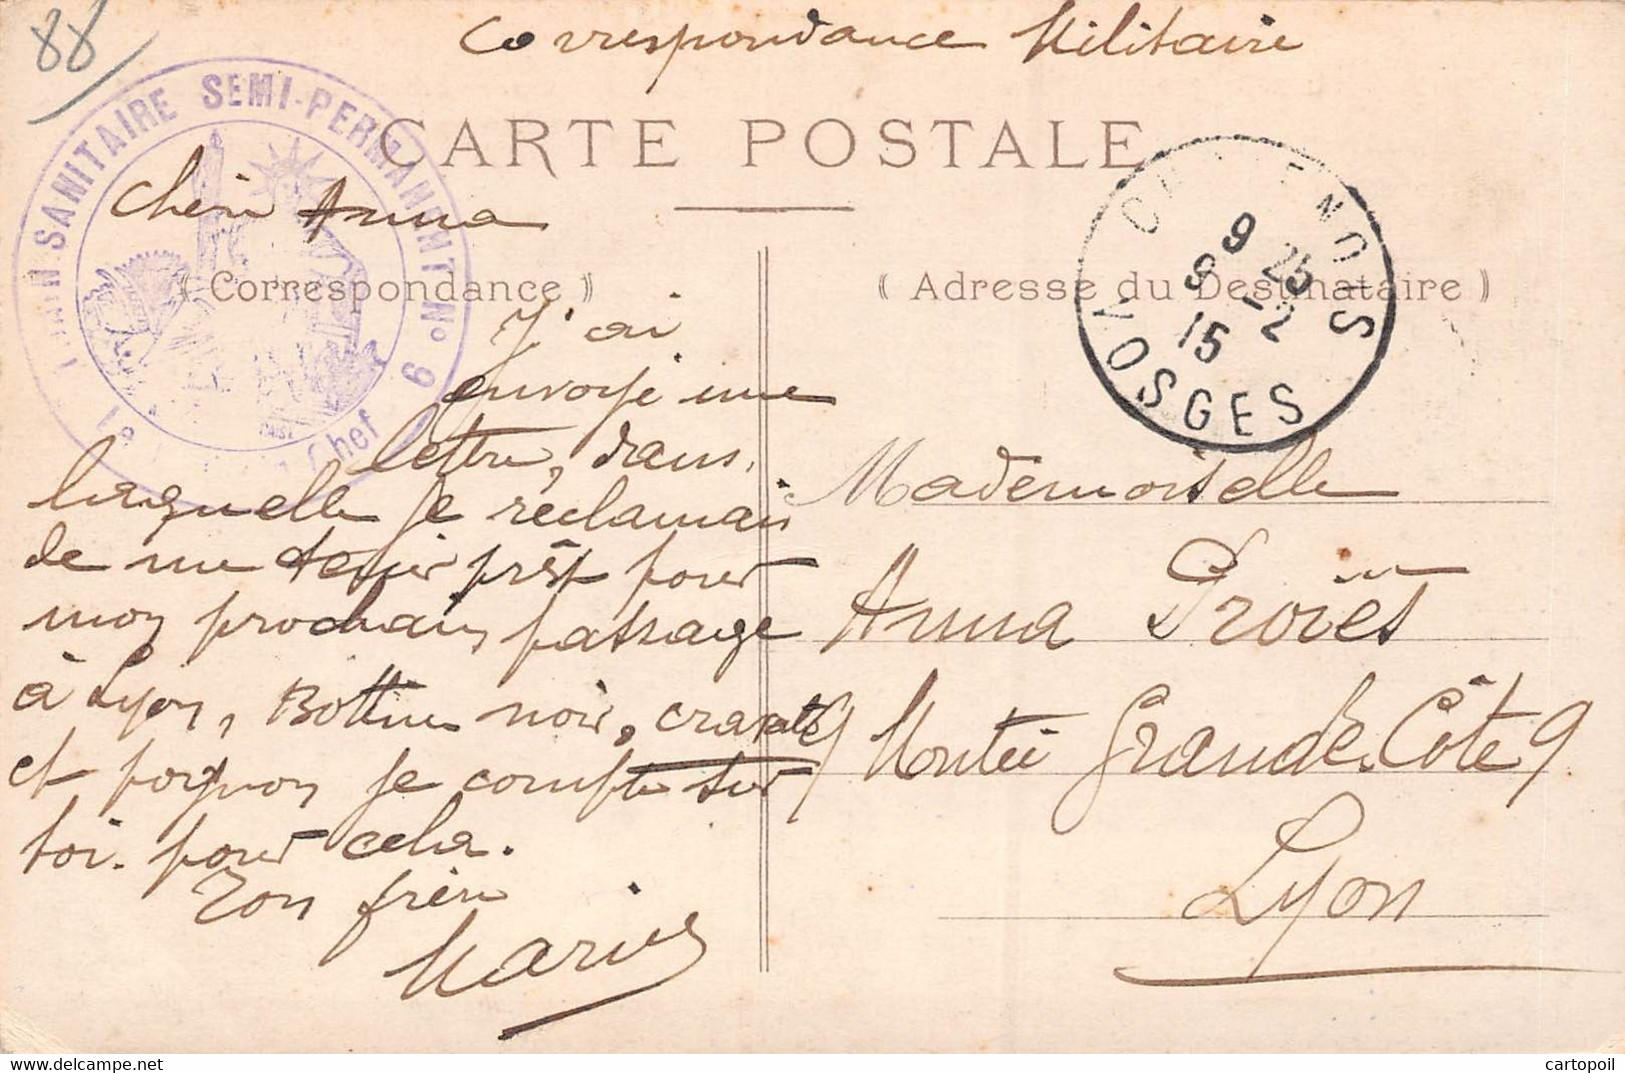 88
Correspondance Militaire
SANITAIRE SEMI-PERMANENT N° 9
Chef
CARTE POSTALE
( Correspondance )
( Adresse du Destinataire )
NOIS
VOSGES
9 25
8 -2
15
Chère Anna
J'ai
envoyé une
lettre, dans
laquelle je réclamais
de me tenir prêt pour
mon prochain passage
à Lyon, Bottine noir, cravate
et pognon je compte sur
toi. pour cela.
Ton frère
Marius
Mademoiselle
Anna Proïes
9 Montée Grande Côte 9
Lyon
cartopoil